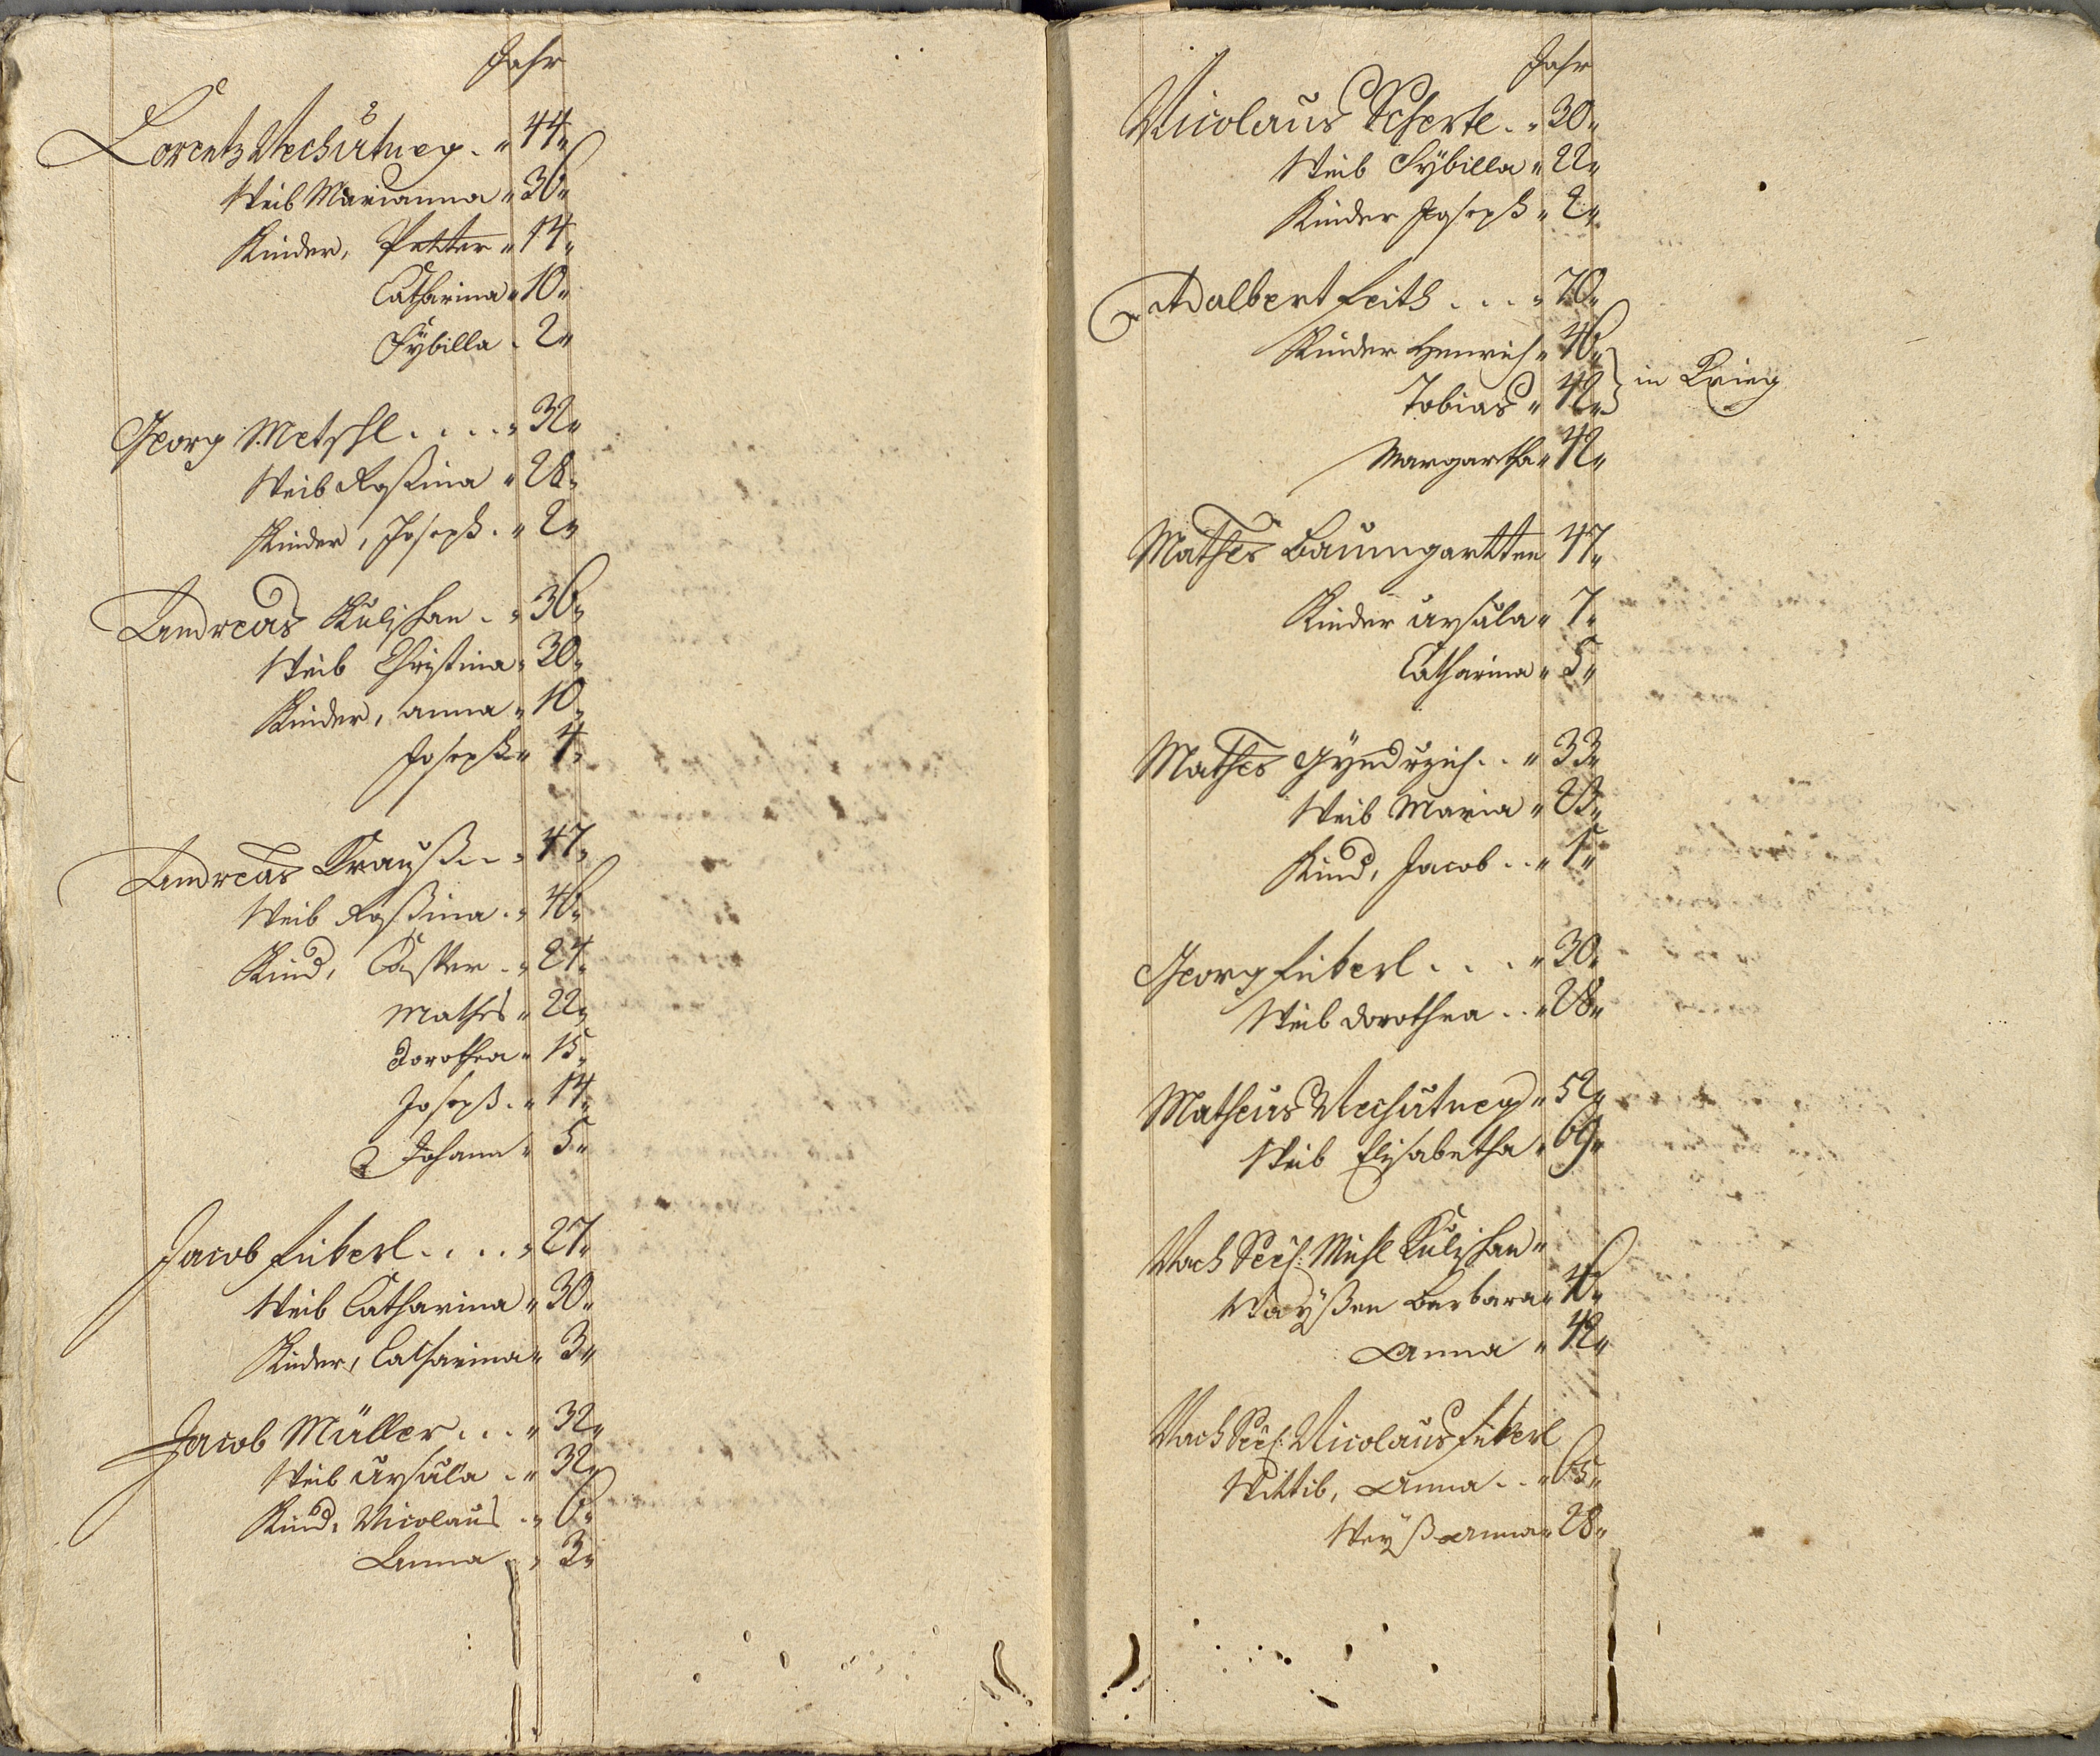 Jahr
Lorentz Nechutneÿ . " 44 "
Weib Marianna " 36 "
Kinder, Petter " 14 "
Catharina " 10 "
Sÿbilla . 2 "
Georg Metschl . . . . " 32 "
Weib Roßina " 28 "
Kinder, Joseph . " 2 "
Andreas Kulzhan . " 36 "
Weib Christina " 30 "
Kinder, Anna " 10 "
Joseph " 4 "
Andreas Krauß . . " 47 "
Weib Roßina . " 46 "
Kind, Casper . " 24 "
Mathes " 22 "
Dorothea " 15 "
Joseph . " 14 "
Johann " 5 "
Jacob Fieberl . . . . " 27 "
Weib Catharina " 30 "
Kinder, Catharina " 3 "
Jacob Müller . . . " 32 "
Weib Ursula . " 32 "
Kind, Nicolaus . " 6 "
Anna . " 3 "
Jahr
Nicolaus Scherte . " 30 "
Weib Sÿbilla " 22 "
Kinder Joseph " 2 "
Adalbert Feith . . . " 70 "
Kinder Henrich " 46 "
Tobias " 42 " } in Krieg
Margaretha " 12 "
Mathes Baumgartten 47 "
Kinder Ursula " 7 "
Catharina " 5 "
Mathes Gÿndrzich . . " 33 "
Weib Maria " 23 "
Kind, Jacob . . " 1 "
Georg Fieberl . . . " 30 "
Weib Dorothea . . " 28 "
Matheus Nechutneÿ " 52 "
Weib Elisabetha " 69 "
Nach Seel: Michl Kulzhan "
Waÿßen Barbara " 16 "
Anna " 12 "
Nach Seel: Nicolaus Fieberl
Wittib, Anna . . " 65 "
Weÿß Anna " 28 "